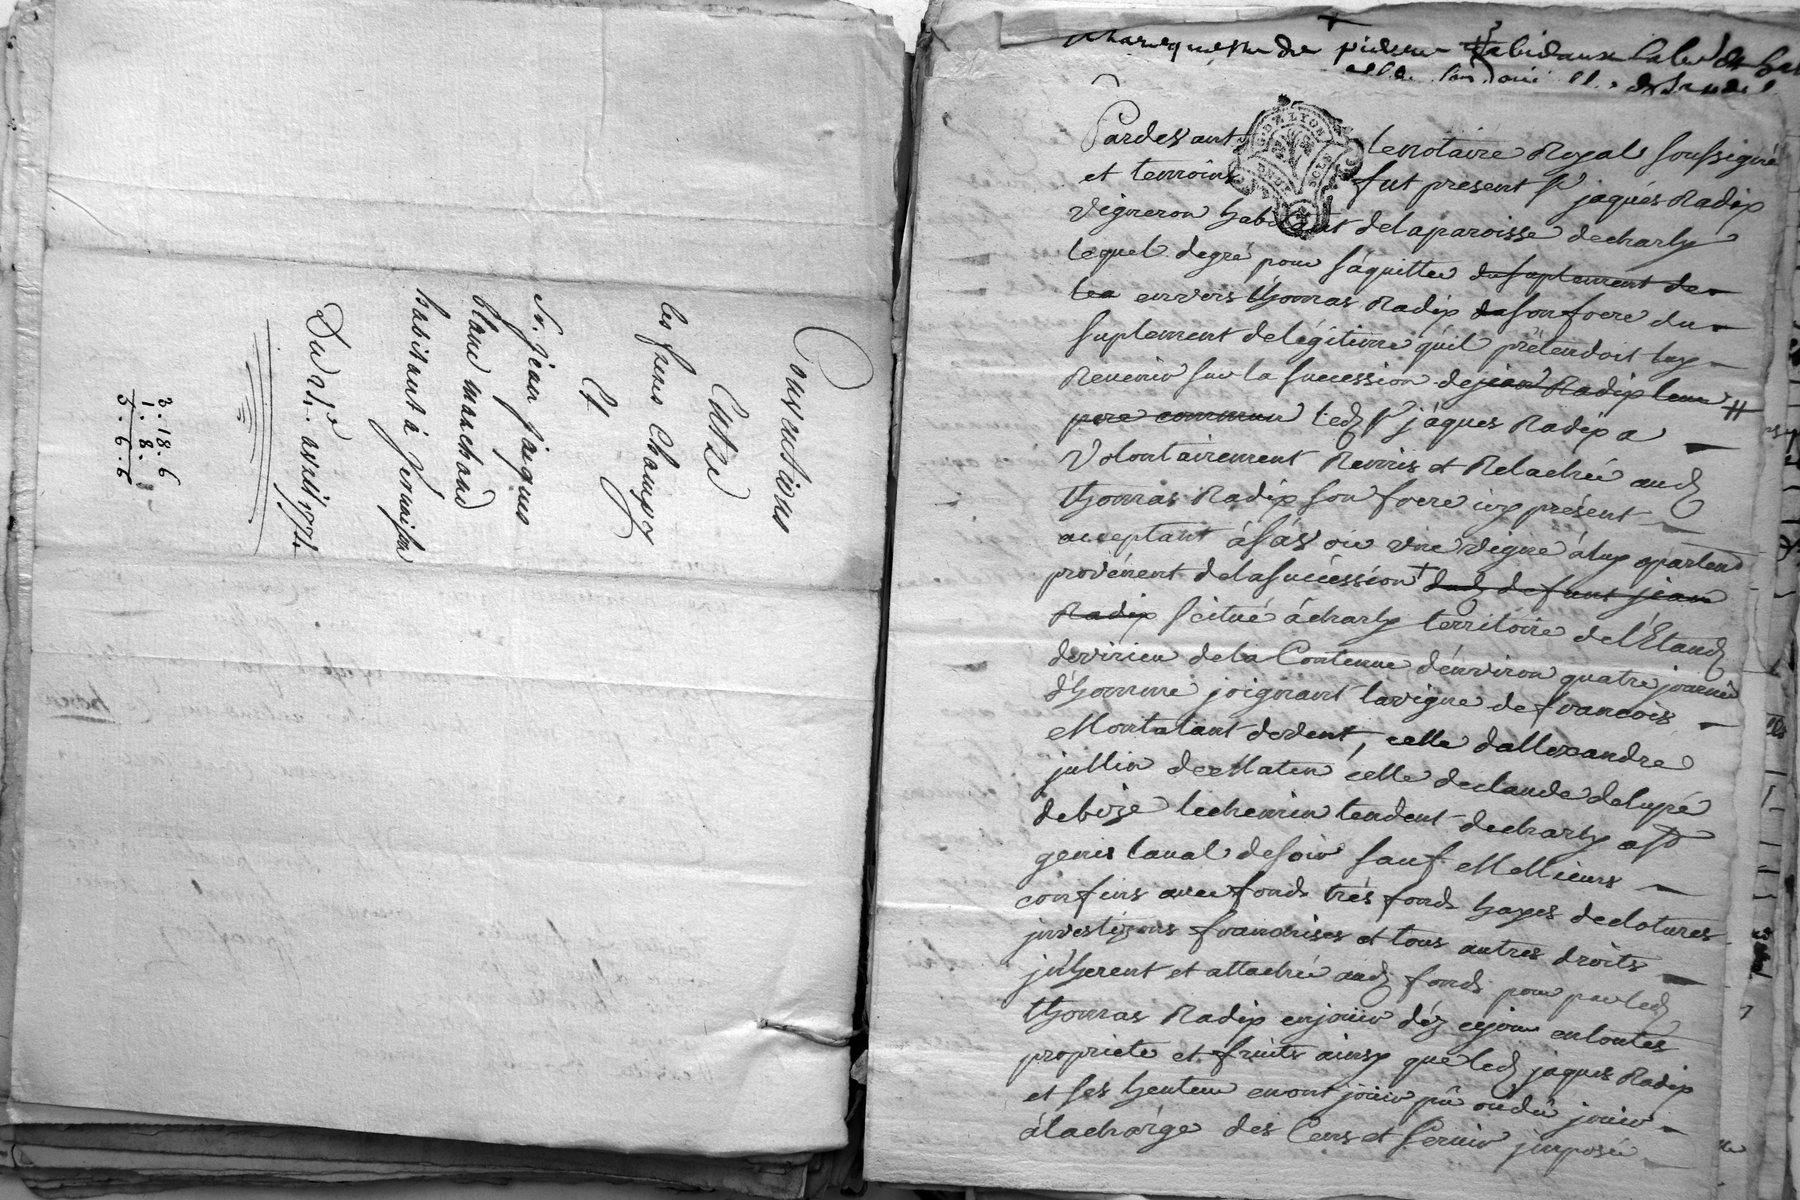 Conventions
Entre
les freres Champoz
Et
Sr. Jean Jacques
blanc marchand
habitant à
Du 21e avril 1774
3. 18. 6
1. 8.
5. 6. 6
Pardevant le notaire Royal soussigné
et temoins fut present Sr jaques Radix
vigneron habitant de la paroisse de charly
lequel de gré pour s'aquitter du suplement de
les envers thomas Radix de son frere du
suplement de légitime qu'il prétendoit luy
Revenir sur la succession de jean Radix leur
pere commun led Sr jaques Radix a
Volontairement Remis et Relaché aud
thomas Radix son frere icy présent
acceptant une vigne à luy apartent
provenent de la succéssion dud defunt jean
Radix scitué à charly territoire de l'Etand
de virieu de la Contenue d'énviron quatre journé
d'homme joignant la vigne de francois
Montalant de vent, celle d'allexandre
jullin de Matin celle de claude de lupé
de bize le chemin tendent de charly a St
genis laval de soir sauf Meillieurs
confins avec fonds très fonds hayes de clotures
investizons franchises et tous autres droits
inherent et attaché aud fonds pour par led
thomas Radix en jouir déz cejour en toutes
propriete et fruits ainsy que led jaques Radix
et ses hauteur en ont jouir pû ou dû jouir
à la charge des Cens et servis imposé
G. DE LYON